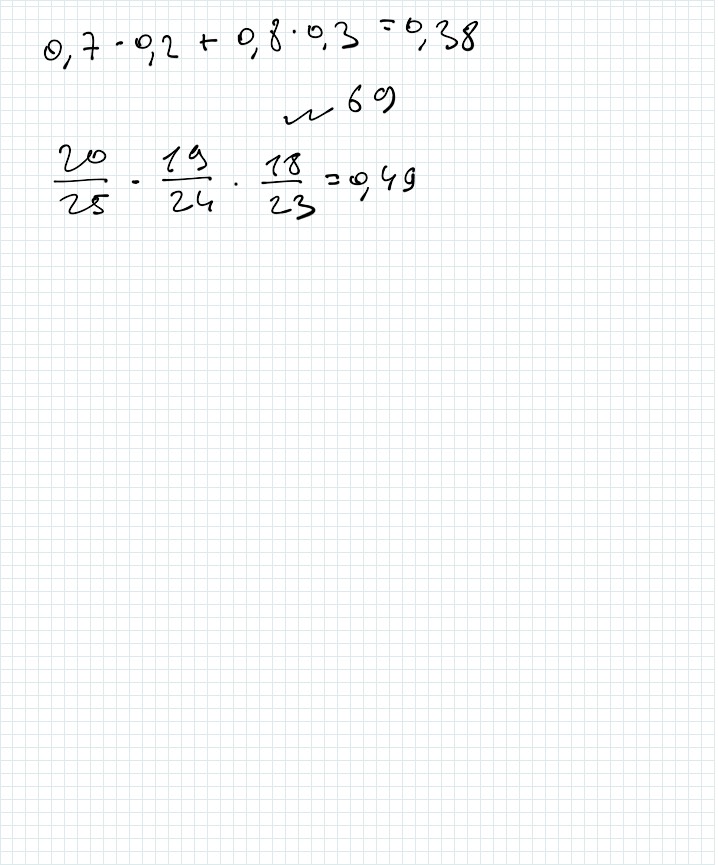 0,7 · 0,2 + 0,8 · 0,3 = 0,38
№ 69
20/25 · 19/24 · 18/23 = 0,49